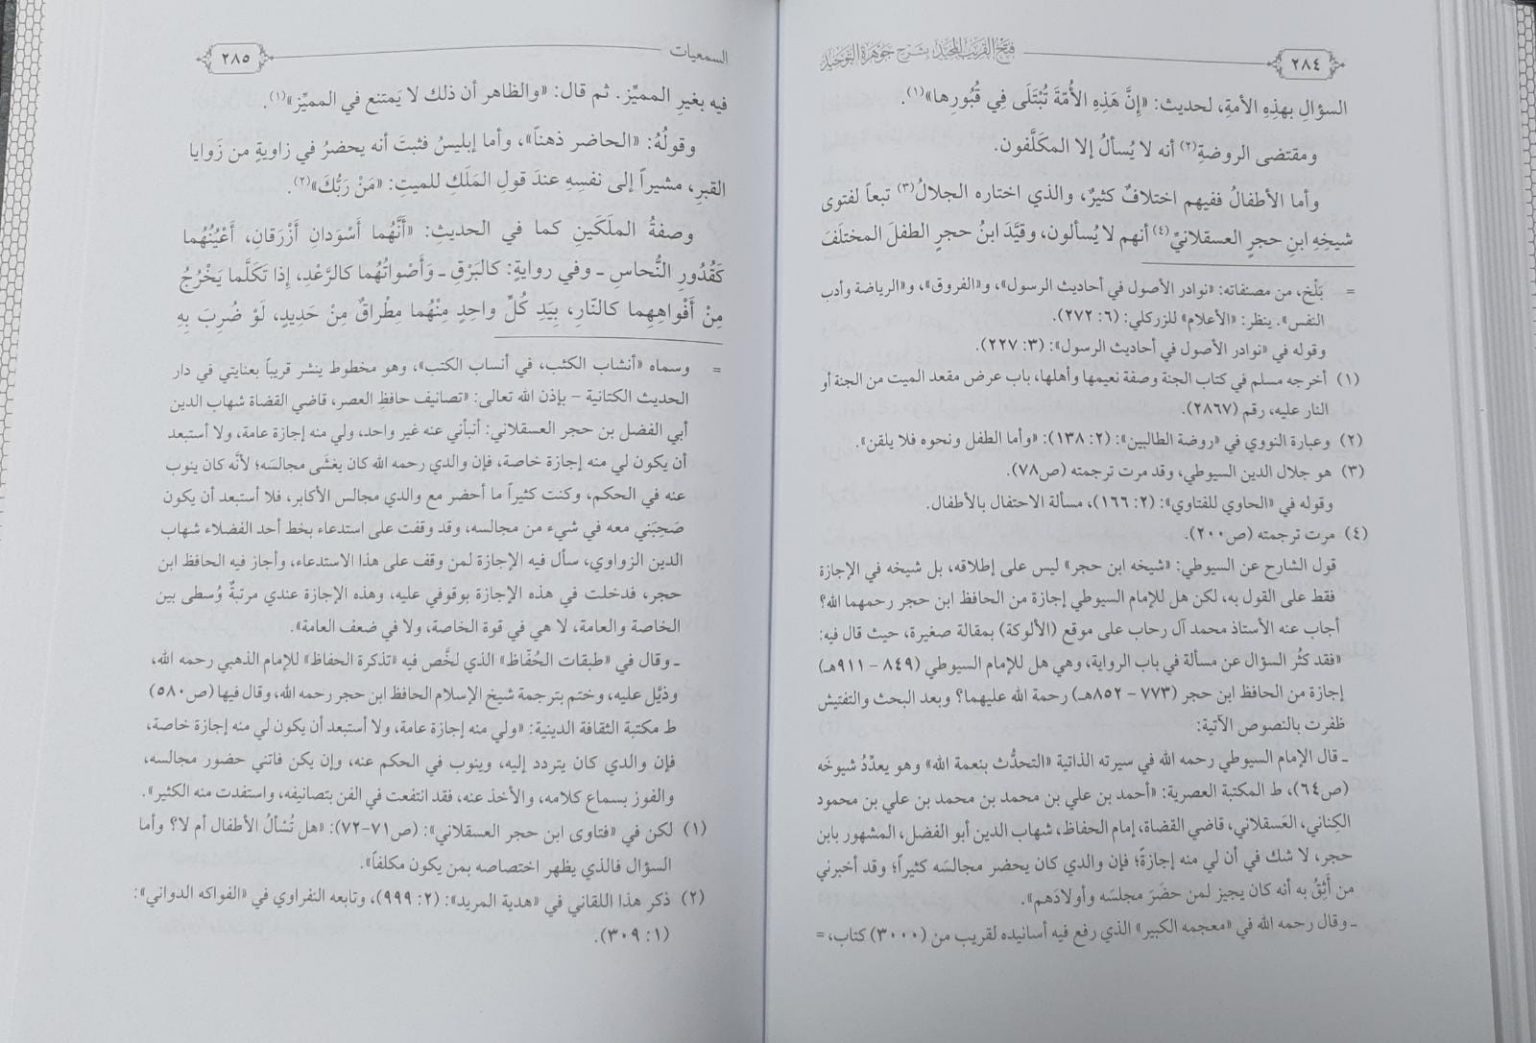 ٢٨٤
فتح القريب المجيد بشرح جوهرة التوحيد
السؤالِ بهذِهِ الأمةِ، لحديث: «إِنَّ هَذِهِ الأُمَّةَ تُبْتَلَى فِي قُبُورِها»(١).
ومقتضى الروضةِ(٢) أنه لا يُسألُ إلا المكَلَّفون.
وأما الأطفالُ ففيهم اختلافٌ كثيرٌ، والذي اختاره الجلالُ(٣) تبعاً لفتوى
شيخِهِ ابنِ حجرٍ العسقلانيِّ(٤) أنهم لا يُسألون، وقيَّدَ ابنُ حجرٍ الطفلَ المختلَفَ
= بَلْخ، من مصنفاته: «نوادر الأصول في أحاديث الرسول»، و«الفروق»، و«الرياضة وأدب
النفس». ينظر: «الأعلام» للزركلي: (٦: ٢٧٢).
وقوله في «نوادر الأصول في أحاديث الرسول»: (٣: ٢٢٧).
(١) أخرجه مسلم في كتاب الجنة وصفة نعيمها وأهلها، باب عرض مقعد الميت من الجنة أو
النار عليه، رقم (٢٨٦٧).
(٢) وعبارة النووي في «روضة الطالبين»: (٢: ١٣٨): «وأما الطفل ونحوه فلا يلقن».
(٣) هو جلال الدين السيوطي، وقد مرت ترجمته (ص٧٨).
وقوله في «الحاوي للفتاوي»: (٢: ١٦٦)، مسألة الاحتفال بالأطفال.
(٤) مرت ترجمته (ص٢٠٠).
قول الشارح عن السيوطي: «شيخه ابن حجر» ليس على إطلاقه، بل شيخه في الإجازة
فقط على القول به، لكن هل للإمام السيوطي إجازة من الحافظ ابن حجر رحمهما الله؟
أجاب عنه الأستاذ محمد آل رحاب على موقع (الألوكة) بمقالة صغيرة، حيث قال فيه:
«فقد كثُر السؤال عن مسألة في باب الرواية، وهي هل للإمام السيوطي (٨٤٩ - ٩١١هـ)
إجازة من الحافظ ابن حجر (٧٧٣ - ٨٥٢هـ) رحمة الله عليهما؟ وبعد البحث والتفتيش
ظفرت بالنصوص الآتية:
ـ قال الإمام السيوطي رحمه الله في سيرته الذاتية «التحدُّث بنعمة الله» وهو يعدِّدُ شيوخَه
(ص٦٤)، ط المكتبة العصرية: «أحمد بن علي بن محمد بن محمد بن علي بن محمود
الكِناني، العَسقلاني، قاضي القضاة، إمام الحفاظ، شهاب الدين أبو الفضل، المشهور بابن
حجر، لا شك في أن لي منه إجازةً؛ فإن والدي كان يحضر مجالسَه كثيراً؛ وقد أخبرني
من أَثِقُ به أنه كان يجيز لمن حضَرَ مجلسَه وأولادَهم».
ـ وقال رحمه الله في «معجمه الكبير» الذي رفع فيه أسانيده لقريب من (٣٠٠٠) كتاب، =
السمعيات
٢٨٥
فيه بغيرِ المميِّز. ثم قال: «والظاهر أن ذلك لا يَمتنع في المميِّز»(١).
وقولُهُ: «الحاضر ذهناً»، وأما إبليسُ فثبتَ أنه يحضرُ في زاويةٍ من زَوايا
القبرِ، مشيراً إلى نفسِهِ عندَ قولِ المَلَكِ للميتِ: «مَنْ رَبُّكَ»(٢).
وصفةُ الملَكَينِ كما في الحديث: «أَنَّهُما أَسْوَدانِ أَزْرَقانِ، أَعْيُنُهُما
كَقُدُورِ النُّحاسِ ـ وفي روايةٍ: كالبَرْقِ ـ وَأَصْواتُهُما كالرَّعْدِ، إِذا تَكَلَّما يَخْرُجُ
مِنْ أَفْواهِهِما كالنّارِ، بِيَدِ كُلِّ واحِدٍ مِنْهُما مِطْراقٌ مِنْ حَدِيدٍ، لَوْ ضُرِبَ بِهِ
= وسماه «أنشاب الكثب، في أنساب الكتب»، وهو مخطوط ينشر قريباً بعنايتي في دار
الحديث الكتانية – بإذن الله تعالى: «تصانيف حافظِ العصر، قاضي القضاة شهاب الدين
أبي الفضل بن حجر العسقلاني: أنبأني عنه غير واحد، ولي منه إجازة عامة، ولا أستبعد
أن يكون لي منه إجازة خاصة، فإن والدي رحمه الله كان يغشَى مجالسَه؛ لأنَّه كان ينوب
عنه في الحكم، وكنت كثيراً ما أحضر مع والدي مجالس الأكابر، فلا أستبعد أن يكون
صَحِبَني معه في شيء من مجالسه، وقد وقفت على استدعاء بخط أحد الفضلاء شهاب
الدين الزواوي، سأل فيه الإجازة لمن وقف على هذا الاستدعاء، وأجاز فيه الحافظ ابن
حجر، فدخلت في هذه الإجازة بوقوفي عليه، وهذه الإجازة عندي مرتبةٌ وُسطى بين
الخاصة والعامة، لا هي في قوة الخاصة، ولا في ضعف العامة».
ـ وقال في «طبقات الحُفّاظ» الذي لخَّص فيه «تذكرة الحفاظ» للإمام الذهبي رحمه الله،
وذيَّل عليه، وختم بترجمة شيخ الإسلام الحافظ ابن حجر رحمه الله، وقال فيها (ص٥٨٠)
ط مكتبة الثقافة الدينية: «ولي منه إجازة عامة، ولا أستبعد أن يكون لي منه إجازة خاصة،
فإن والدي كان يتردد إليه، وينوب في الحكم عنه، وإن يكن فاتني حضور مجالسه،
والفوز بسماع كلامه، والأخذ عنه، فقد انتفعت في الفن بتصانيفه، واستفدت منه الكثير».
(١) لكن في «فتاوى ابن حجر العسقلاني»: (ص٧١-٧٢): «هل تُسْألُ الأطفال أم لا؟ وأما
السؤال فالذي يظهر اختصاصه بمن يكون مكلفاً».
(٢) ذكر هذا اللقاني في «هدية المريد»: (٢: ٩٩٩)، وتابعه النفراوي في «الفواكه الدواني»:
(١: ٣٠٩).